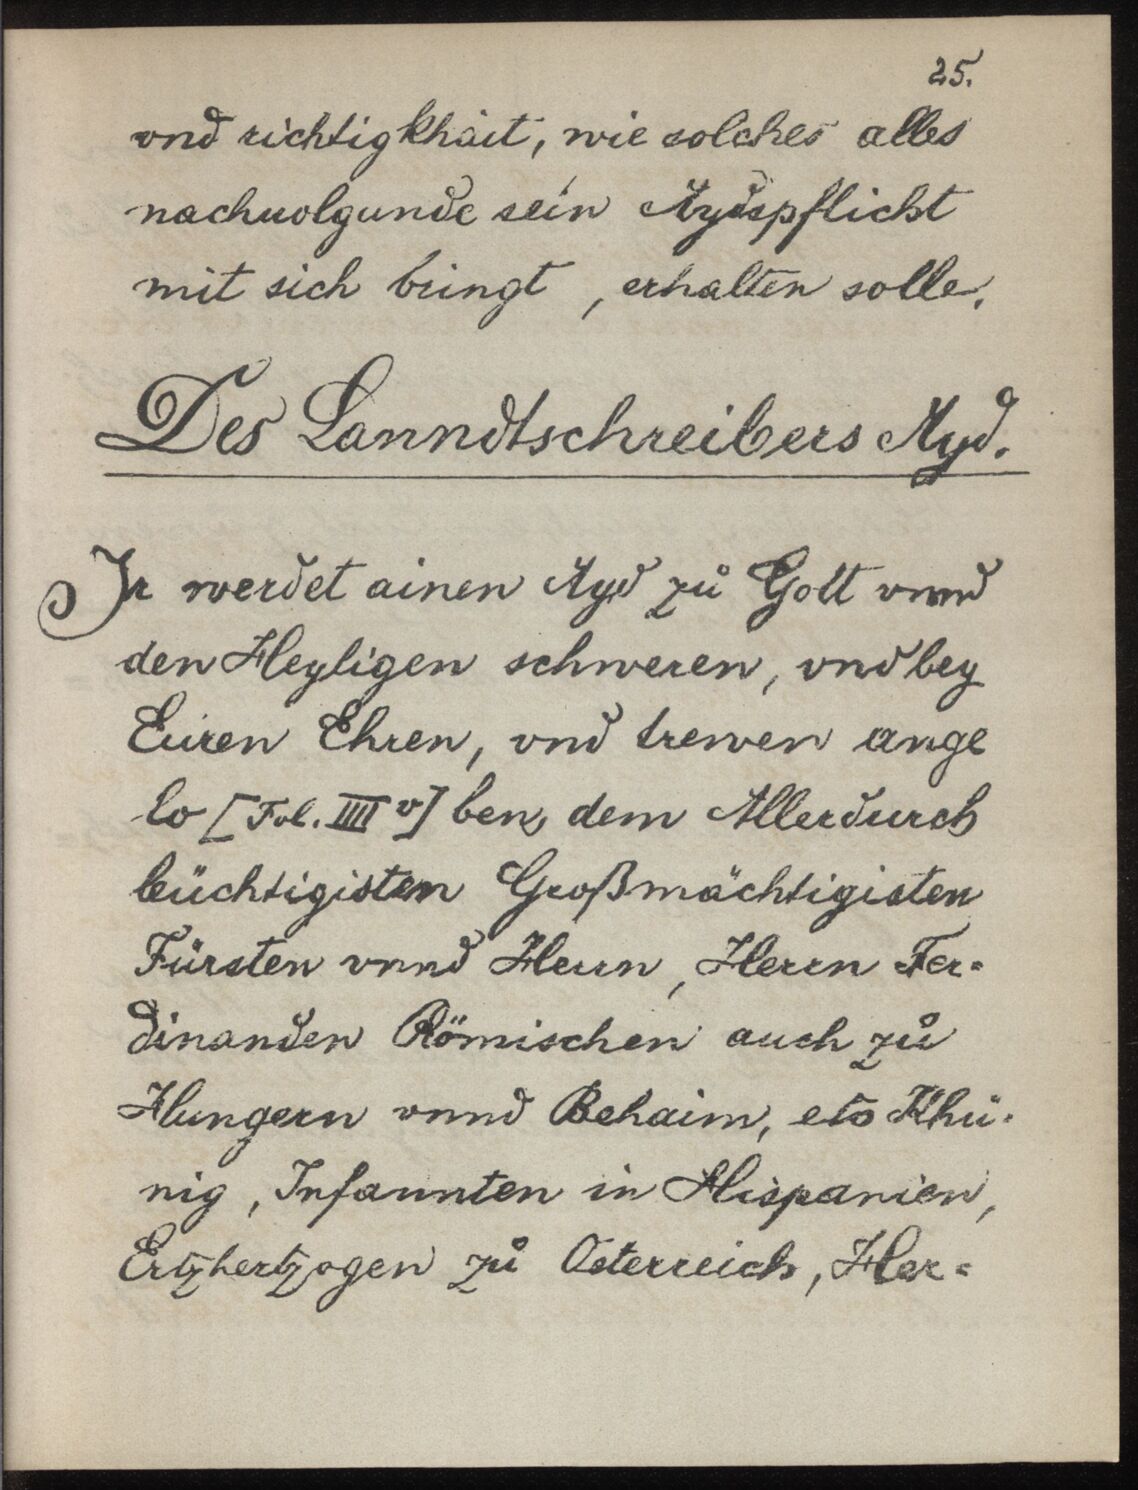 25.
vnd richtigkhait, wie solches alles
nachuolgunde sein Aydspflicht
mit sich bringt, erhalten solle.
Des Lanndtschreibers Ayd.
Ir werdet ainen Ayd zů Gott vnnd
den Heyligen schweren, vnd bey
Euren Ehren, vnd trewen ange
lo [Fol. IIII v] ben, dem Allerdurch
leüchtigisten Großmächtigisten
Fürsten vnnd Herrn, Herrn Fer=
dinanden Römischen auch zů
Hungern vnnd Behaim, etc Khü=
nig, Infannten in Hispanien,
Ertzhertzogen zů Osterreich, Her=